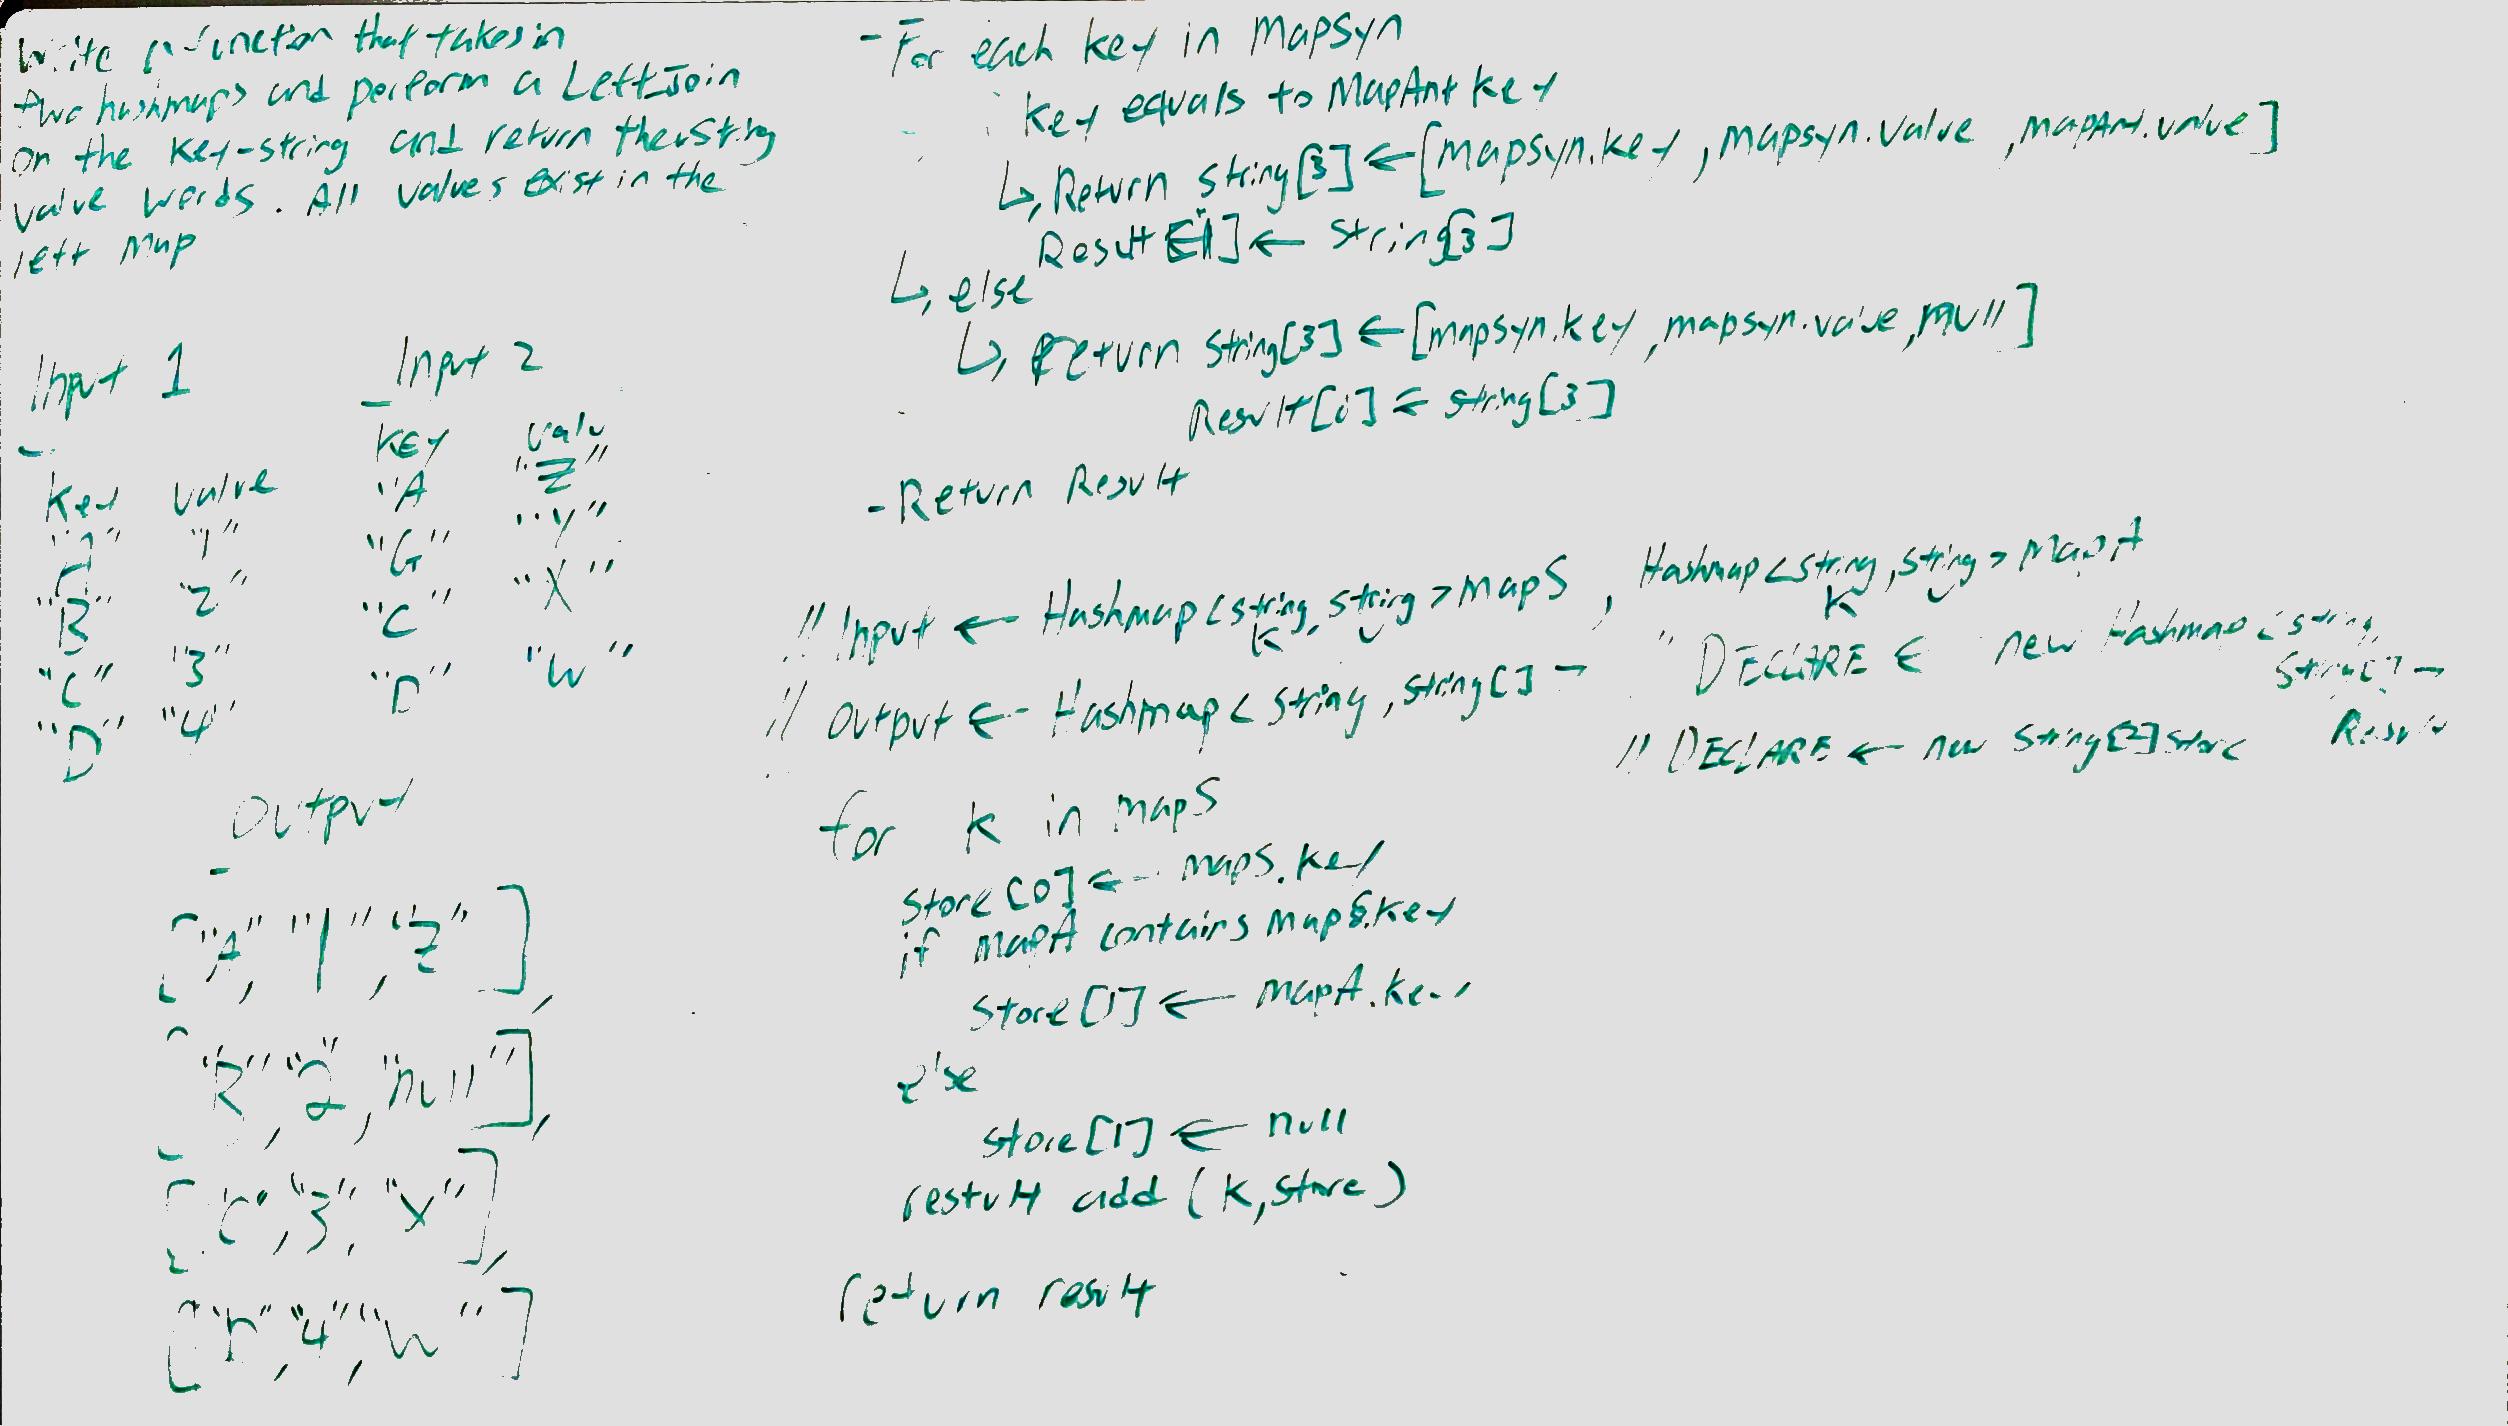 Write a function that takes in
two hashmaps and perform a Left-Join
on the key-string and return the string
value words. All values exist in the
left map
Input 1
Key Value
"A" "1"
"B" "2"
"C" "3"
"D" "4"
Input 2
KEY Valu
"A "Z"
"G" "Y"
"C" "X"
"D" "W"
Output
["A", "1", "Z"],
["B", "2, "null"],
["C", "3", "X"],
["D", "4", "W"]
- For each key in MapSyn
Key equals to MapAnt key
↳, Return string[3] ← [mapsyn.key, mapsyn.value, mapAnt.value]
Result[i] ← string[3]
↳, else
↳, Return string[3] ← [mapsyn.key, mapsyn.value, null]
Result[i] ← string[3]
- Return Result
// Input ← Hashmap<string, string> mapS, Hashmap<string, string> MapA
K V K V
// Output ← Hashmap<string, string[]>
// DECLARE ← new Hashmap<string,
string[]>
Result
// DECLARE ← new string[2] store
for K in mapS
store[0] ← mapS.key
if mapA contains mapS.key
store[1] ← mapA.key
else
store[1] ← null
result add (K, store)
return result